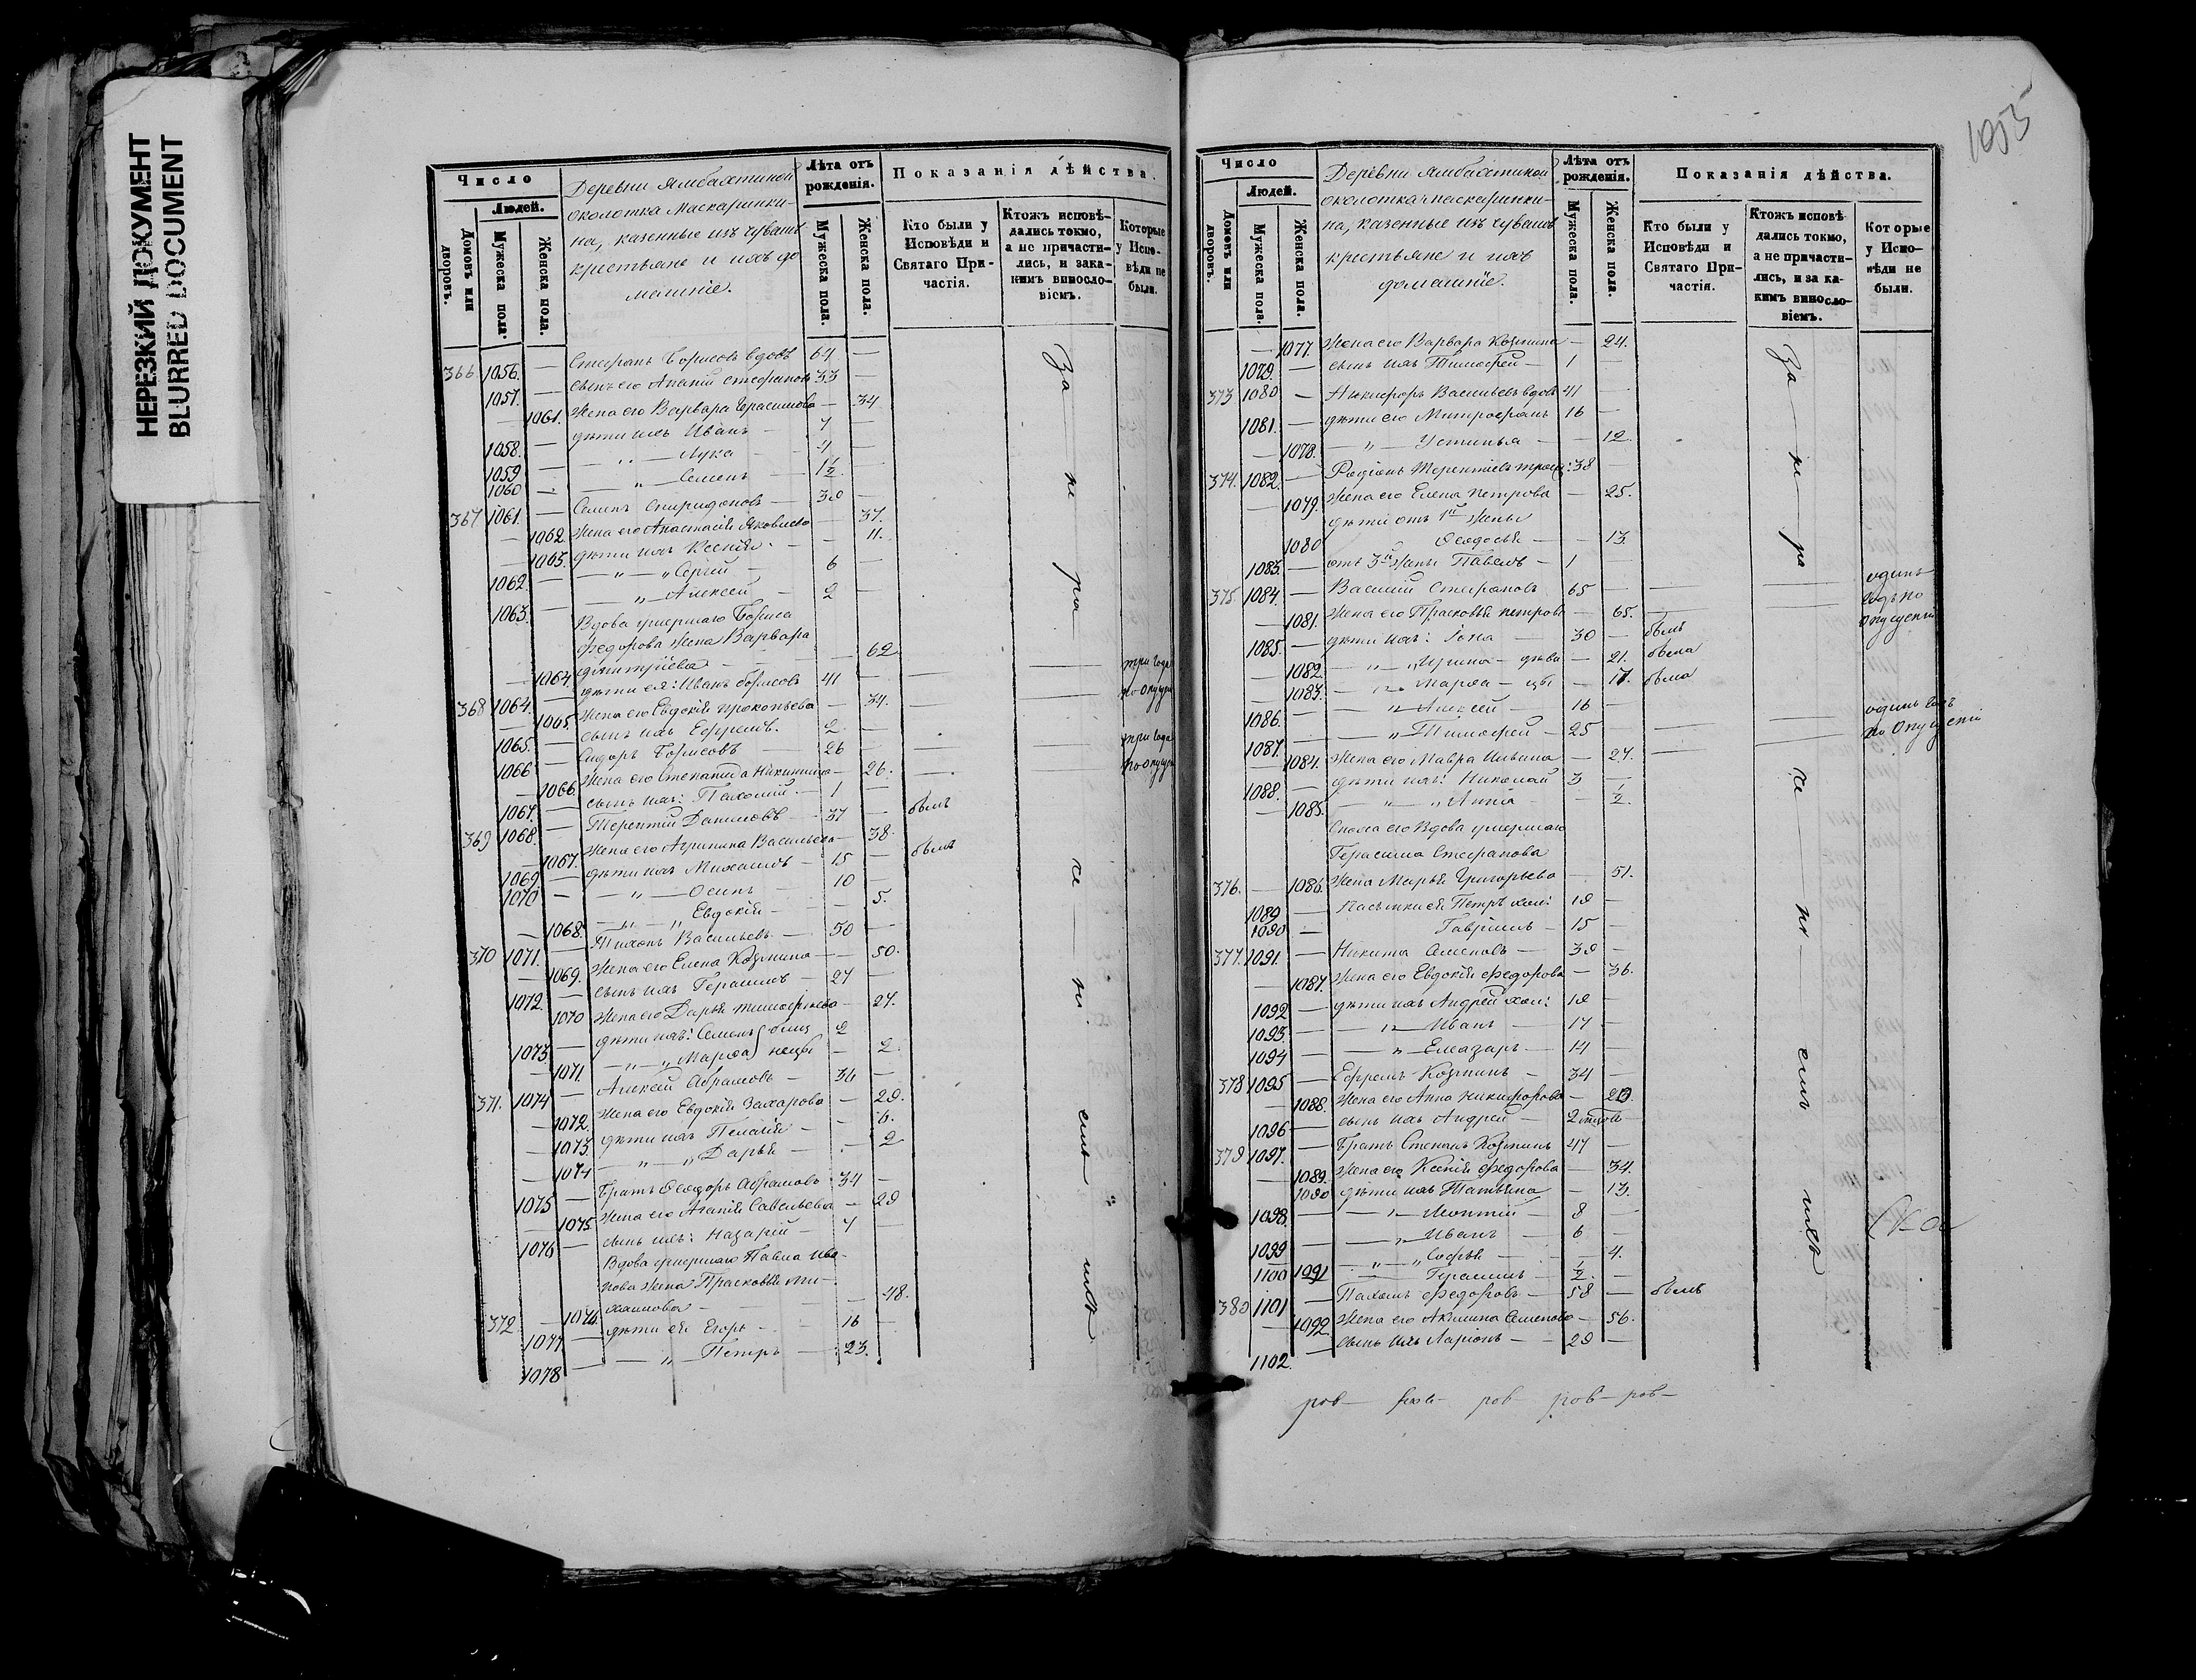 НЕРЕЗКИЙ ДОКУМЕНТ
BLURRED DOCUMENT
Число
Людей.
Домовъ или дворовъ.
Мужеска пола.
Женска пола.
Деревни Ямбахтиной
околотка Маскаринки-
на, казенные изъ чувашъ
крестьяне и ихъ до
машніе.
Лѣта отъ рожденія.
Мужеска пола.
Женска пола.
Показанія дѣйства.
Кто были у Исповѣди и Святаго Причастія.
Ктожъ исповѣ-дались токмо, а не причасти-лись, и зака-кимъ винословіемъ.
Которые у Испо-вѣди не были.
366 1056. — Стефанъ Борисовъ вдовъ 64 —
1057. — сынъ его Ананій Стефановъ 33 —
— 1061. Жена его Варвара Герасимова — 34
1058. — дѣти ихъ Иванъ — 7 —
1059 — — „ — Лука — 4 —
1060 — — „ — Семенъ — 1½ —
367 1061. — Семенъ Спиридоновъ — 38 —
— 1062. Жена его Анастасія Яковлева — 37.
— 1063. дѣти ихъ Ксенія — — 11.
1062. — — „ — „ Сергій — 6 —
1063. — — „ Алексей — 2 —
Вдова умершаго Бориса
Федорова жена Варвара
— 1064. Димитріева — — 62
368 1064. — дѣти ея: Иванъ Борисовъ 41 — три года
— 1065. Жена его Евдокія Прокопьева — 34. по опущ
1065. — сынъ ихъ Ефремъ. 2 —
1066 — Сидоръ Борисовъ 26 — три года
— 1066. Жена его Степанида Никитина — 26. по опущ
1067. — сынъ ихъ: Пахомій — 1 —
369 1068. — Терентій Даниловъ — 37 — былъ
— 1067. Жена его Агрипина Васильева — 38.
1069 — дѣти ихъ Михаилъ — 15 — былъ
1070 — — „ — Осипъ 10 —
— 1068. — „ — „ Евдокія — — 5.
370 1071. — Тихонъ Васильевъ — 50 —
— 1069. Жена его Елена Козмина — — 50.
1072. — сынъ ихъ Герасимъ — 27 —
— 1070 Жена его Дарья Тимофеева — 27.
1073. — дѣти ихъ: Семенъ близ 2
— 1071. — „ — „ Марѳа нецы — 2.
371. 1074 — Алексей Абрамовъ — 36 —
— 1072. Жена его Евдокія Захарова — 29.
— 1073. дѣти ихъ Пелагія — — 6.
— 1074 — „ — „ Дарья — 2
1075 — Братъ Ѳеодоръ Абрамовъ 34 —
— 1075. Жена его Агапія Савельева — 29
1076 — сынъ ихъ: Назарій — 7 —
Вдова умершаго Павла Ива-
нова жена Прасковья Ми-
372. — 1076. хаилова — — 48.
1077 — дѣти ея Егоръ — 16 —
1078 — — „ — Петръ — 23. —
За не ра че ні емъ ихъ
1053
Число
Людей.
Домовъ или дворовъ.
Мужеска пола.
Женска пола.
Деревни Ямбахтиной
околотка Маскаринки-
на, казенные изъ чувашъ
крестьяне и ихъ
домашніе.
Лѣта отъ рожденія.
Мужеска пола.
Женска пола.
Показанія дѣйства.
Кто были у Исповѣди и Святаго Причастія.
Ктожъ исповѣ-дались токмо, а не причасти-лись, и за ка-кимъ винословіемъ.
Которые у Испо-вѣди не были.
— 1077. Жена его Варвара Козмина — 24.
1079. — сынъ ихъ Тимофей — 1 —
373 1080 — Никифоръ Васильевъ вдовъ 41
1081. — дѣти его Митрофанъ 16 —
— 1078. — „ — Устинья — — 12.
374. 1082. — Родіонъ Терентіевъ 38 —
— 1079. Жена его Елена Петрова — 25.
дѣти отъ 1й жены
1080 Ѳеодосья — — 13.
1083. — отъ 3й жены Павелъ — 1
375 1084. — Василій Стефановъ 65 — одинъ
— 1081. Жена его Прасковья Петрова — 65. годъ по
1085. — дѣти ихъ: Іона — 30 — былъ опущенію
— 1082. — „ — „ Ирина — дѣва — 21. была
— 1083. — „ — Марѳа — — 17. была
1086. — — „ — Алексей — 16 —
1087. — — „ — Тимофей — 25 — одинъ годъ
— 1084. Жена его Мавра Ильина — 27. по опущенію
1088. — дѣти ихъ: Николай 3 —
— 1085. — „ — „ Анна — ½.
Сноха его Вдова умершаго
Герасима Стефанова
376. — 1086. Жена Марья Григорьева — 51.
1089 — Пасынки ея Петръ хол: 19 —
1090 — Гавріилъ — 15 —
377. 1091. — Никита Семеновъ — 39 —
— 1087. Жена его Евдокія Федорова — 36.
1092 — дѣти ихъ Андрей хол: 19 —
1093. — — „ — Иванъ 17 —
1094 — — „ — Елеазаръ — 14 —
378 1095 — Ефремъ Козминъ — 34 —
— 1088. Жена его Анна Никифорова —
1096 — сынъ ихъ Андрей — 2
379 1097. — Братъ Степанъ Козминъ 47 —
— 1089. Жена его Ксенія Федорова — 34.
1090 дѣти ихъ Татьяна — 13.
1098. — — „ — Леонтій — 8 —
1099 — — „ Иванъ — 6 —
1091 — „ — „ Софья — — 4.
1100 — Герасимъ — ½. —
380 1101 — Пахомъ Федоровъ — 58 — былъ
— 1092. Жена его Акилина Семенова — 56.
1102. — сынъ ихъ Ларіонъ — 29 —
За не ра че ні емъ ихъ